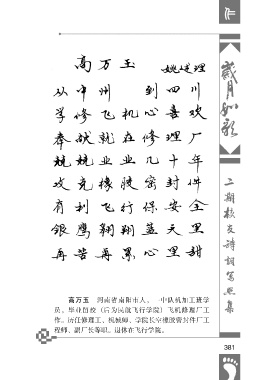 高万玉
姚廷理
从中州 到四川
学修飞机心喜欢
奉献就在修理厂
兢兢业业几十年
攻克橡胶密封件
有利飞行保安全
银鹰翱翔蓝天里
再苦再累心里甜
高万玉 河南省南阳市人。一中队机加工班学
员。毕业留校（后为民航飞行学院）飞机修理厂工
作。历任修理工、机械师、学院长空橡胶密封件厂工
程师、副厂长等职。退休在飞行学院。
岁月如歌
二期校友诗词写照集
381